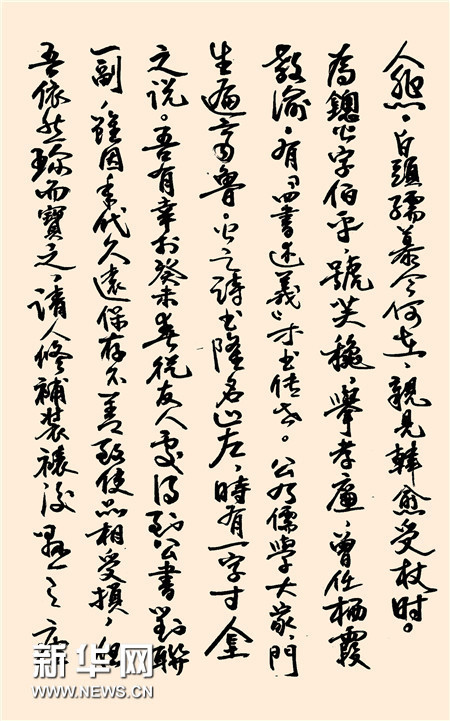 人,白頭孺慕今何在,親見韓愈受杖时。
为鏓公字伯平,號笑穐,舉孝廉,曾任栖霞
教諭,有《四書述義》等书传世。公乃儒學大家,門
生遍齊魯。公之詩书隆名山左,時有一字寸金
之说。吾有幸於癸未春從友人處得到公書對聯
一副,雖因年代久遠保存不善致使品相受損,但
吾依然珍而寶之,請人修補裝裱後懸之
新华网
WWW.NEWS.CN